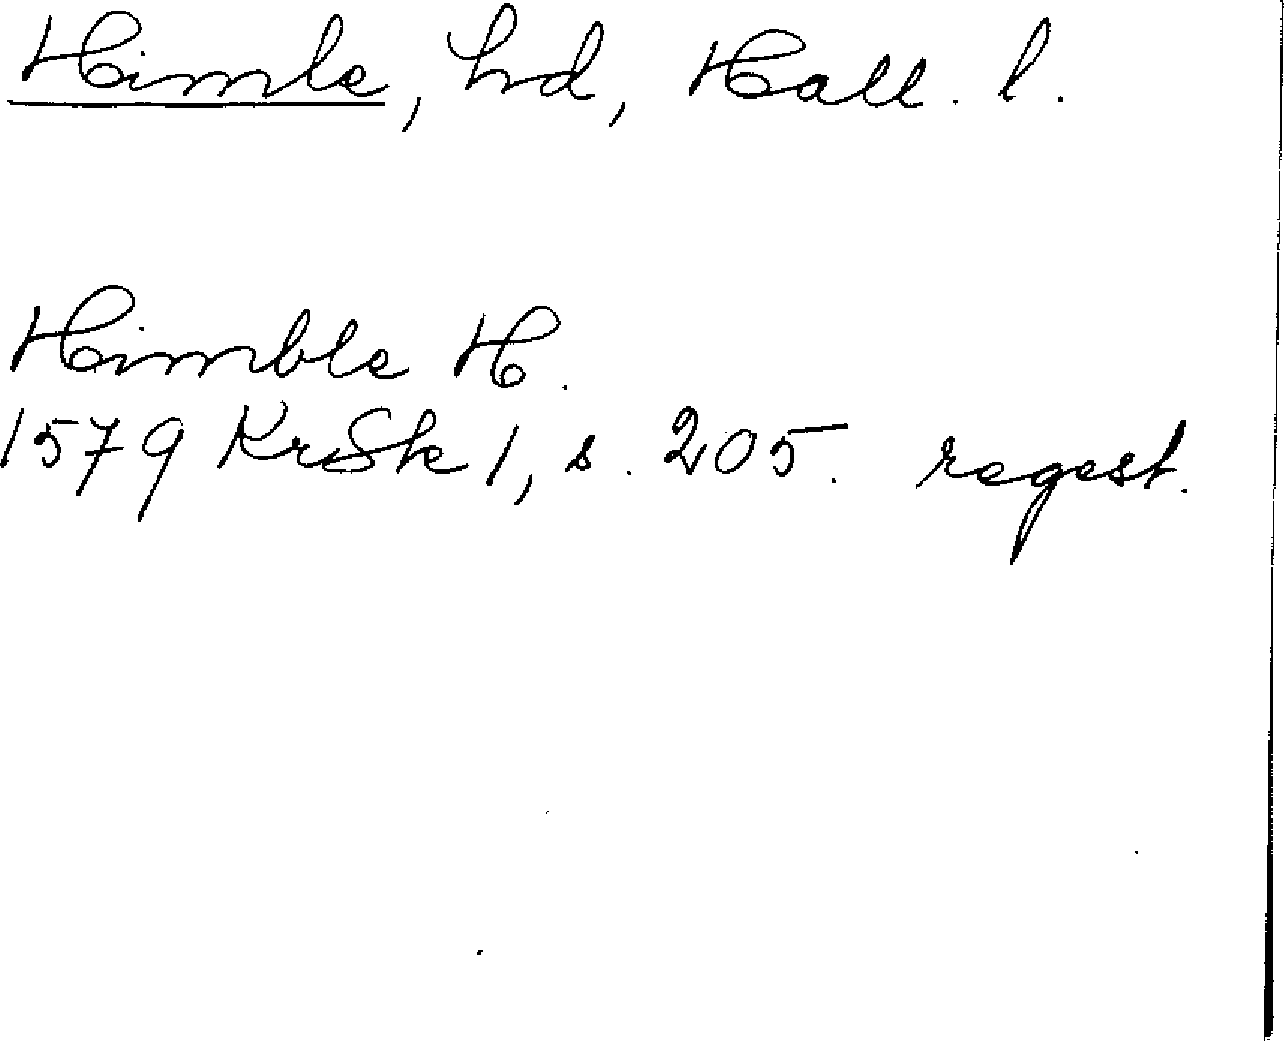 Himle, hd, Hall. l.
Himble H.
1579 KrSk 1, s. 205. regest.